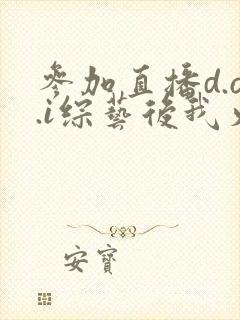 參加直播d.o
.i綜藝後我
安寶